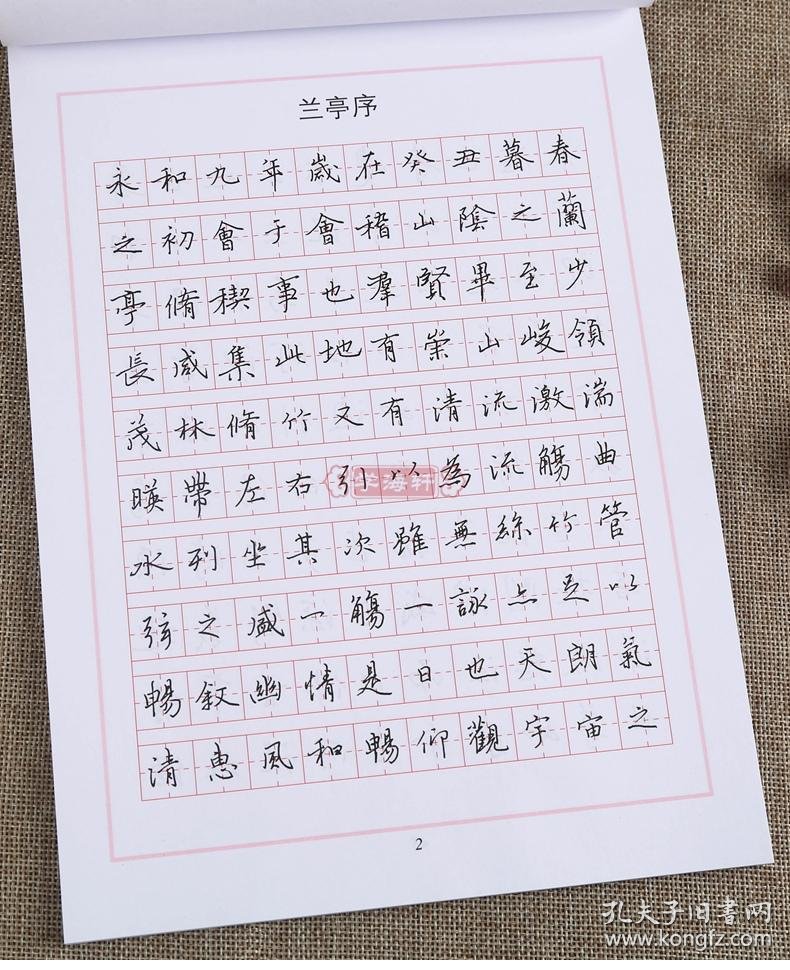 兰亭序
永和九年歲在癸丑暮春
之初會于會稽山陰之蘭
亭脩稧事也羣賢畢至少
長咸集此地有崇山峻領
茂林脩竹又有清流激湍
暎帶左右引以為流觴曲
水列坐其次雖無絲竹管
弦之盛一觴一詠亦足以
暢敘幽情是日也天朗氣
清惠風和暢仰觀宇宙之
学海轩
2
孔夫子旧书网
www.kongfz.com